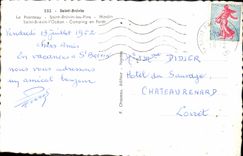 232 - Saint-Brévin
Le Pointeau - Saint-Brévin-les-Pins - Moulin
Saint-Brévin-l'Océan - Camping en Forêt
Vendredi 13 juillet 1962
Chers Amis
En vacances à St Brévin
nous vous adressons
un amical bonjour
DIDIER
Hotel du Sauvage
CHATEAURENARD
Loiret